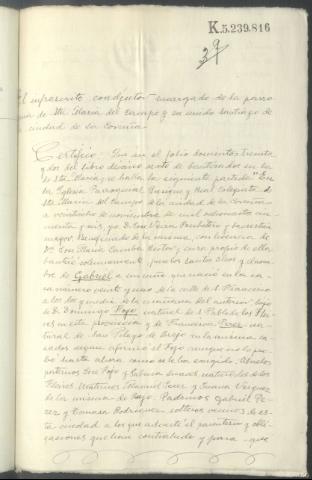 K.5.239.816
39
El infrascrito coadjutor encargado de la parro
quia de Sta Maria del Campo y su unido Santiago de
la ciudad de la Coruña
Certifico: Que en el folio doscientos treinta
y dos del libro décimo sexto de bautizados en la de
Sta Maria, se halla la siguiente partida "En la
Iglesia Parroquial Insigne y Real Colegiata de
Sta Maria del Campo de la ciudad de la Coruña
a veintiocho de noviembre de mil ochocientos cin
cuenta y seis, yo D. José
mayor, Beneficiado de la misma, con licencia de
Dn José Maria cura propio de ella
bauticé solemnemente, puse los santos oleos y el nom
bre de Gabriel a un niño que nació en la ca
sa numero veinte y uno de la calle de
a las dos y media de la mañana del anterior: hijo
de D. Domingo Pozo natural de S. Pablo de los
res en esta provincia y de Francisca Perez na
tural de San Pelayo de en la misma ca
sados segun afirmó el Pozo aunque no lo pro
bó hasta ahora como se le ha exigido. Abuelos
paternos José Pozo y natural de los
Flores. Maternos Manuel Perez y Juana Vazquez
de la misma de Padrinos Gabriel Pe
rez y Ramona Rodriguez solteros vecinos de es
ta ciudad a los que advertí el parentesco y obli
gaciones que han contraido y para que